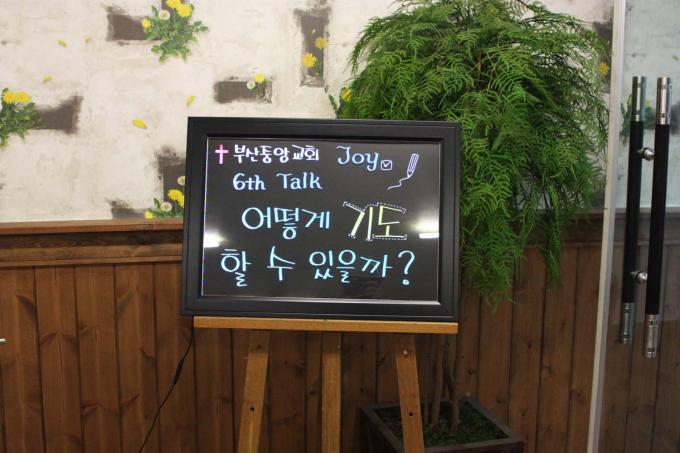 부산중앙교회 Joy
6th Talk
어떻게 기도
할 수 있을까?